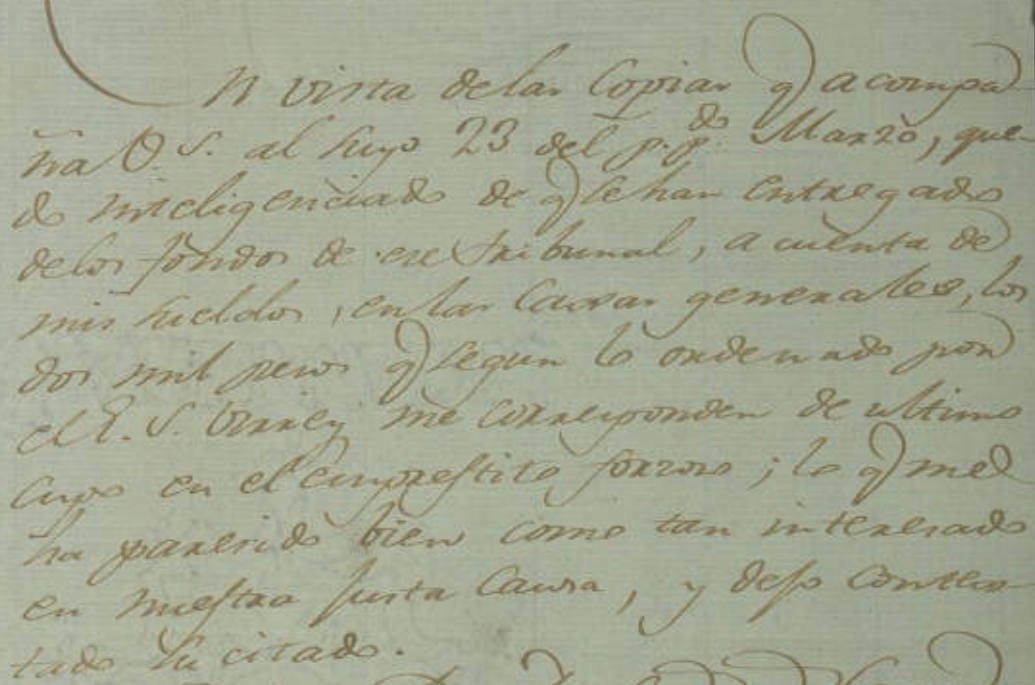 En vista delas Copias q acompa
ña V.S. al suyo 23 del p.p.do Marzo, que
do inteligenciado de q se han entregado
delos fondos de ese tribunal, a cuenta de
mis sueldos, en las Caxas generales, los
dos mil pesos q segun lo ordenado por
el E.S. Virrey me corresponden de ultimo
cupo en el emprestito forzoso; lo q me
ha parecido bien como tan interesado
en nuestra justa Causa, y dejo contes
tado su citado.